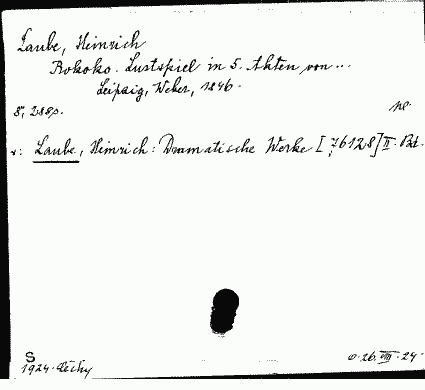 Laube, Heinrich
Rokoko. Lustspiel in 5. Akten von...
Leipzig, Weber, 1846.
8°, 288p.
v: Laube, Heinrich: Dramatische Werke [76128] II. Bd.
S
1924. Děchy
o. 26. VIII. 24.